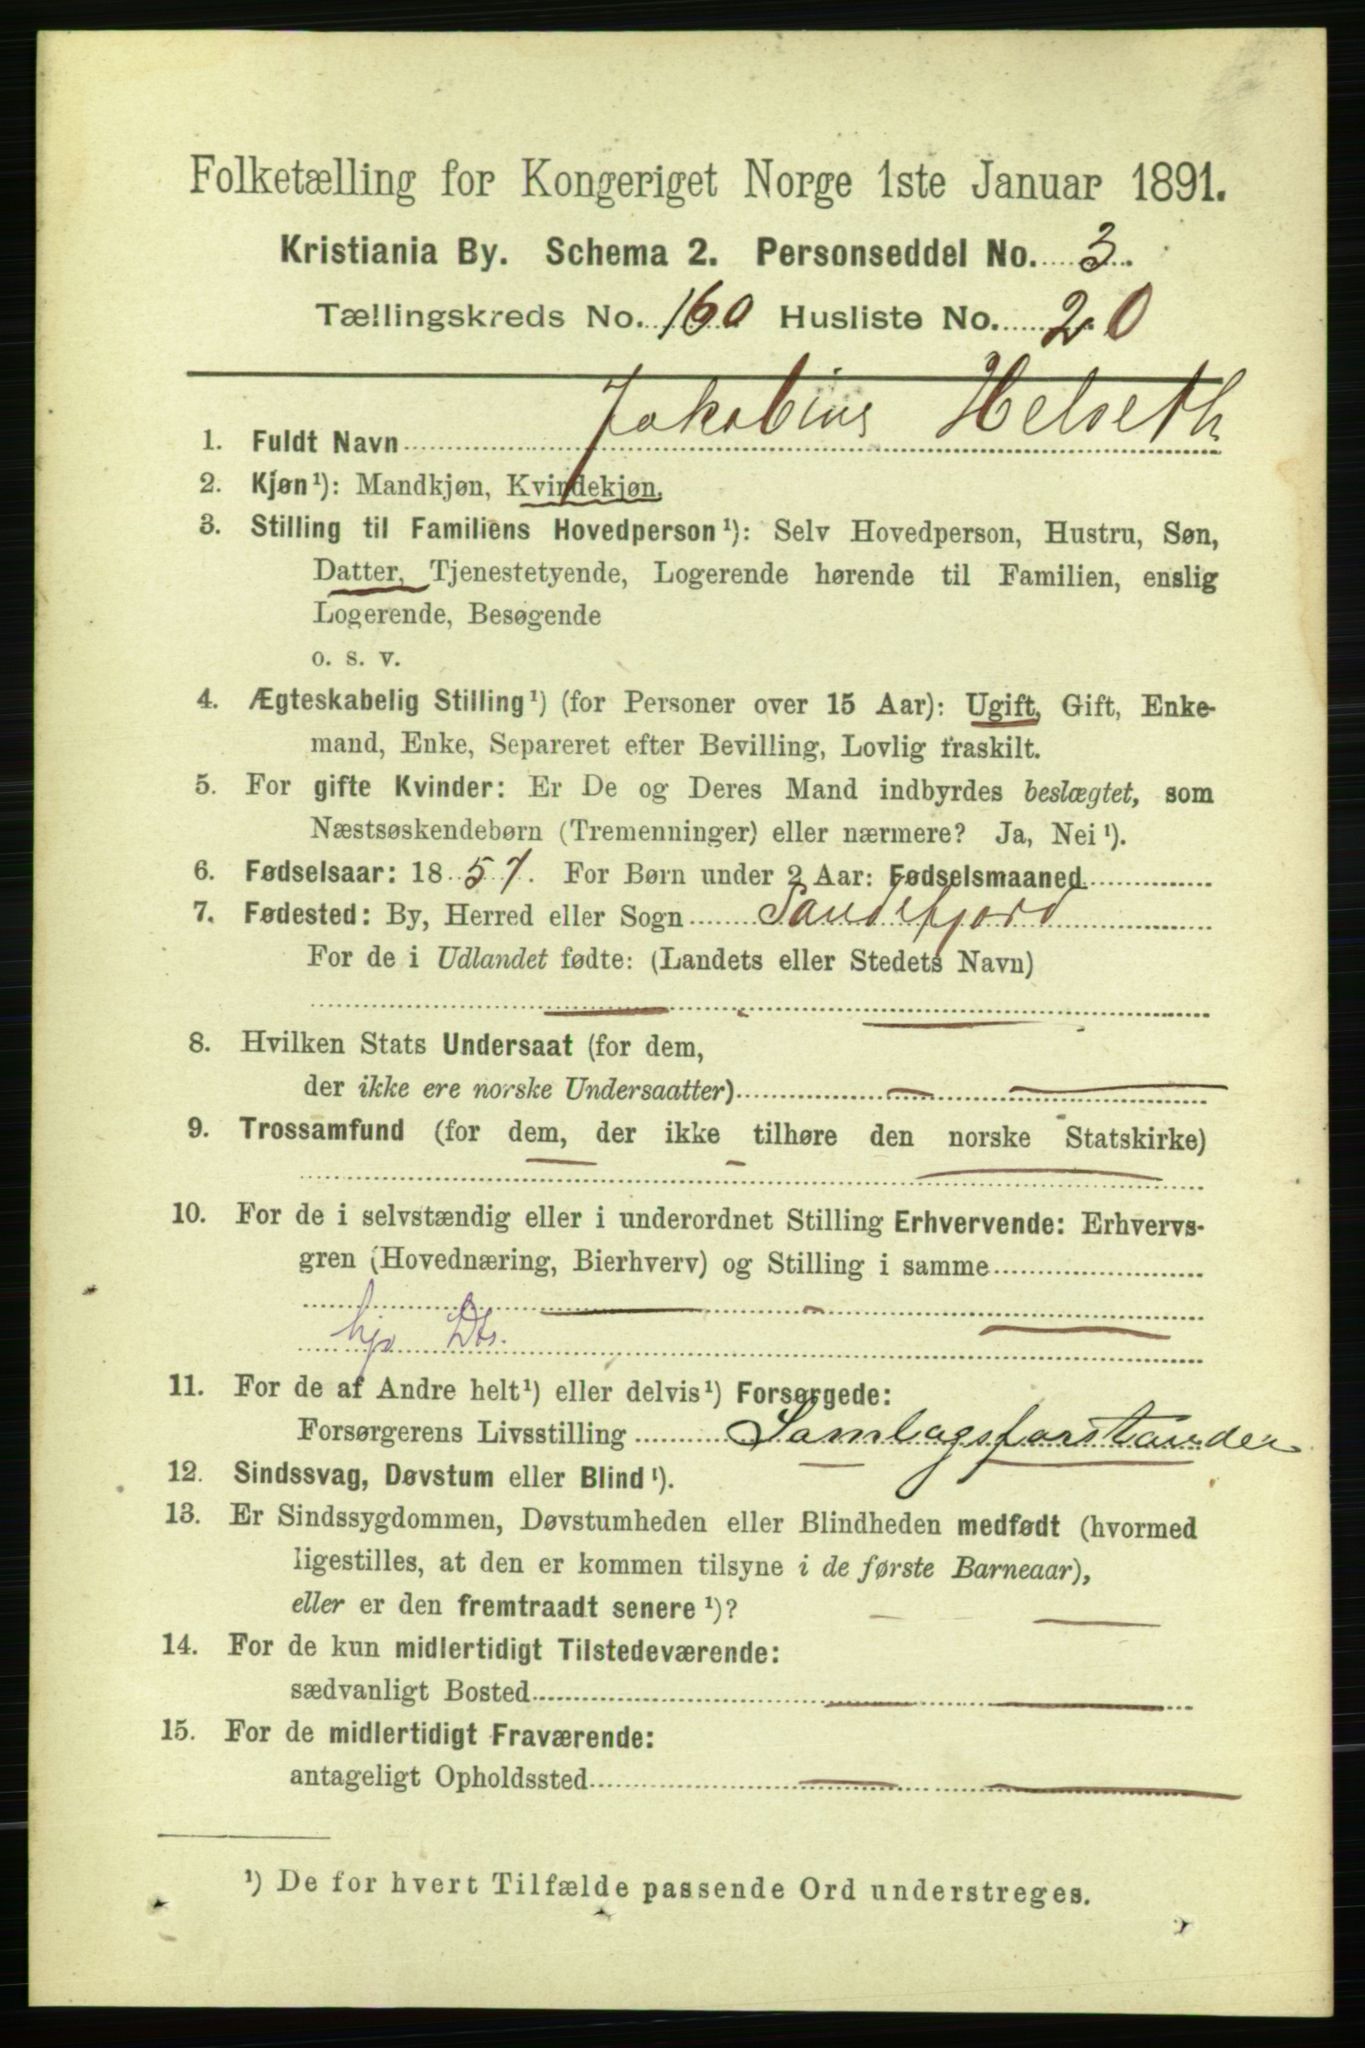 Folketælling for Kongeriget Norge 1ste Januar 1891.
Kristiania By. Schema 2. Personseddel No. 3.
Tællingskreds No. 160 Husliste No. 20
1. Fuldt Navn Jakobine Helseth
2. Kjøn¹): Mandkjøn, Kvindekjøn.
3. Stilling til Familiens Hovedperson¹): Selv Hovedperson, Hustru, Søn,
Datter, Tjenestetyende, Logerende hørende til Familien, enslig
Logerende, Besøgende
o. s. v.
4. Ægteskabelig Stilling¹) (for Personer over 15 Aar): Ugift, Gift, Enke-
mand, Enke, Separeret efter Bevilling, Lovlig fraskilt.
5. For gifte Kvinder: Er De og Deres Mand indbyrdes beslægtet, som
Næstsøskendebørn (Tremenninger) eller nærmere? Ja, Nei¹).
6. Fødselsaar: 1857. For Børn under 2 Aar: Fødselsmaaned
7. Fødested: By, Herred eller Sogn Sandefjord
For de i Udlandet fødte: (Landets eller Stedets Navn)
8. Hvilken Stats Undersaat (for dem,
der ikke ere norske Undersaatter)
9. Trossamfund (for dem, der ikke tilhøre den norske Statskirke)
10. For de i selvstændig eller i underordnet Stilling Erhvervende: Erhvervs-
gren (Hovednæring, Bierhverv) og Stilling i samme
hjv Dtr.
11. For de af Andre helt¹) eller delvis¹) Forsørgede:
Forsørgerens Livsstilling Samlagsforstander
12. Sindssvag, Døvstum eller Blind¹).
13. Er Sindssygdommen, Døvstumheden eller Blindheden medfødt (hvormed
ligestilles, at den er kommen tilsyne i de første Barneaar),
eller er den fremtraadt senere¹)?
14. For de kun midlertidigt Tilstedeværende:
sædvanligt Bosted
15. For de midlertidigt Fraværende:
antageligt Opholdssted
¹) De for hvert Tilfælde passende Ord understreges.